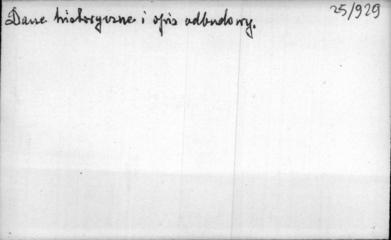 25/929
Dane historyczne i opis odbudowy.